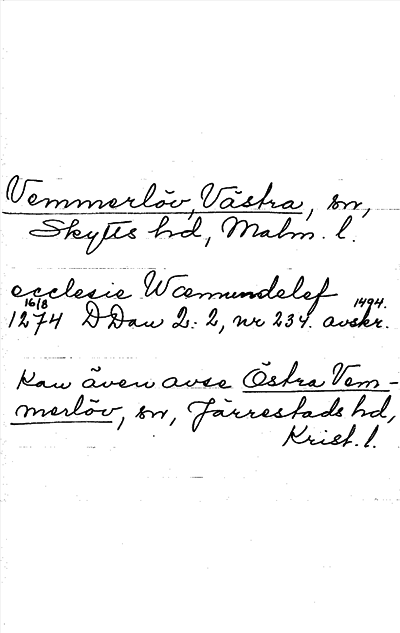 Vemmerlöv, Västra, sn,
Skytts hd, Malm. l.
ecclesie Wæmundelef
1274 16/8 DDan 2:2, nr 234. avskr. 1494.
Kan även avse Östra Vem-
merlöv, sn, Järrestads hd,
Krist. l.